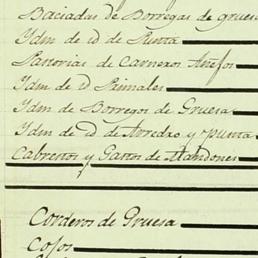 Baciadas de Borregas de grues
Ydm de id de Punta
Paxorias de Carneros Añejos
Ydm de id Primales
Ydm de Borregos de Gruesa
Ydm de id de Arredro y punta
Cabreros y Gastos de
Corderos de Gruesa
Cojos